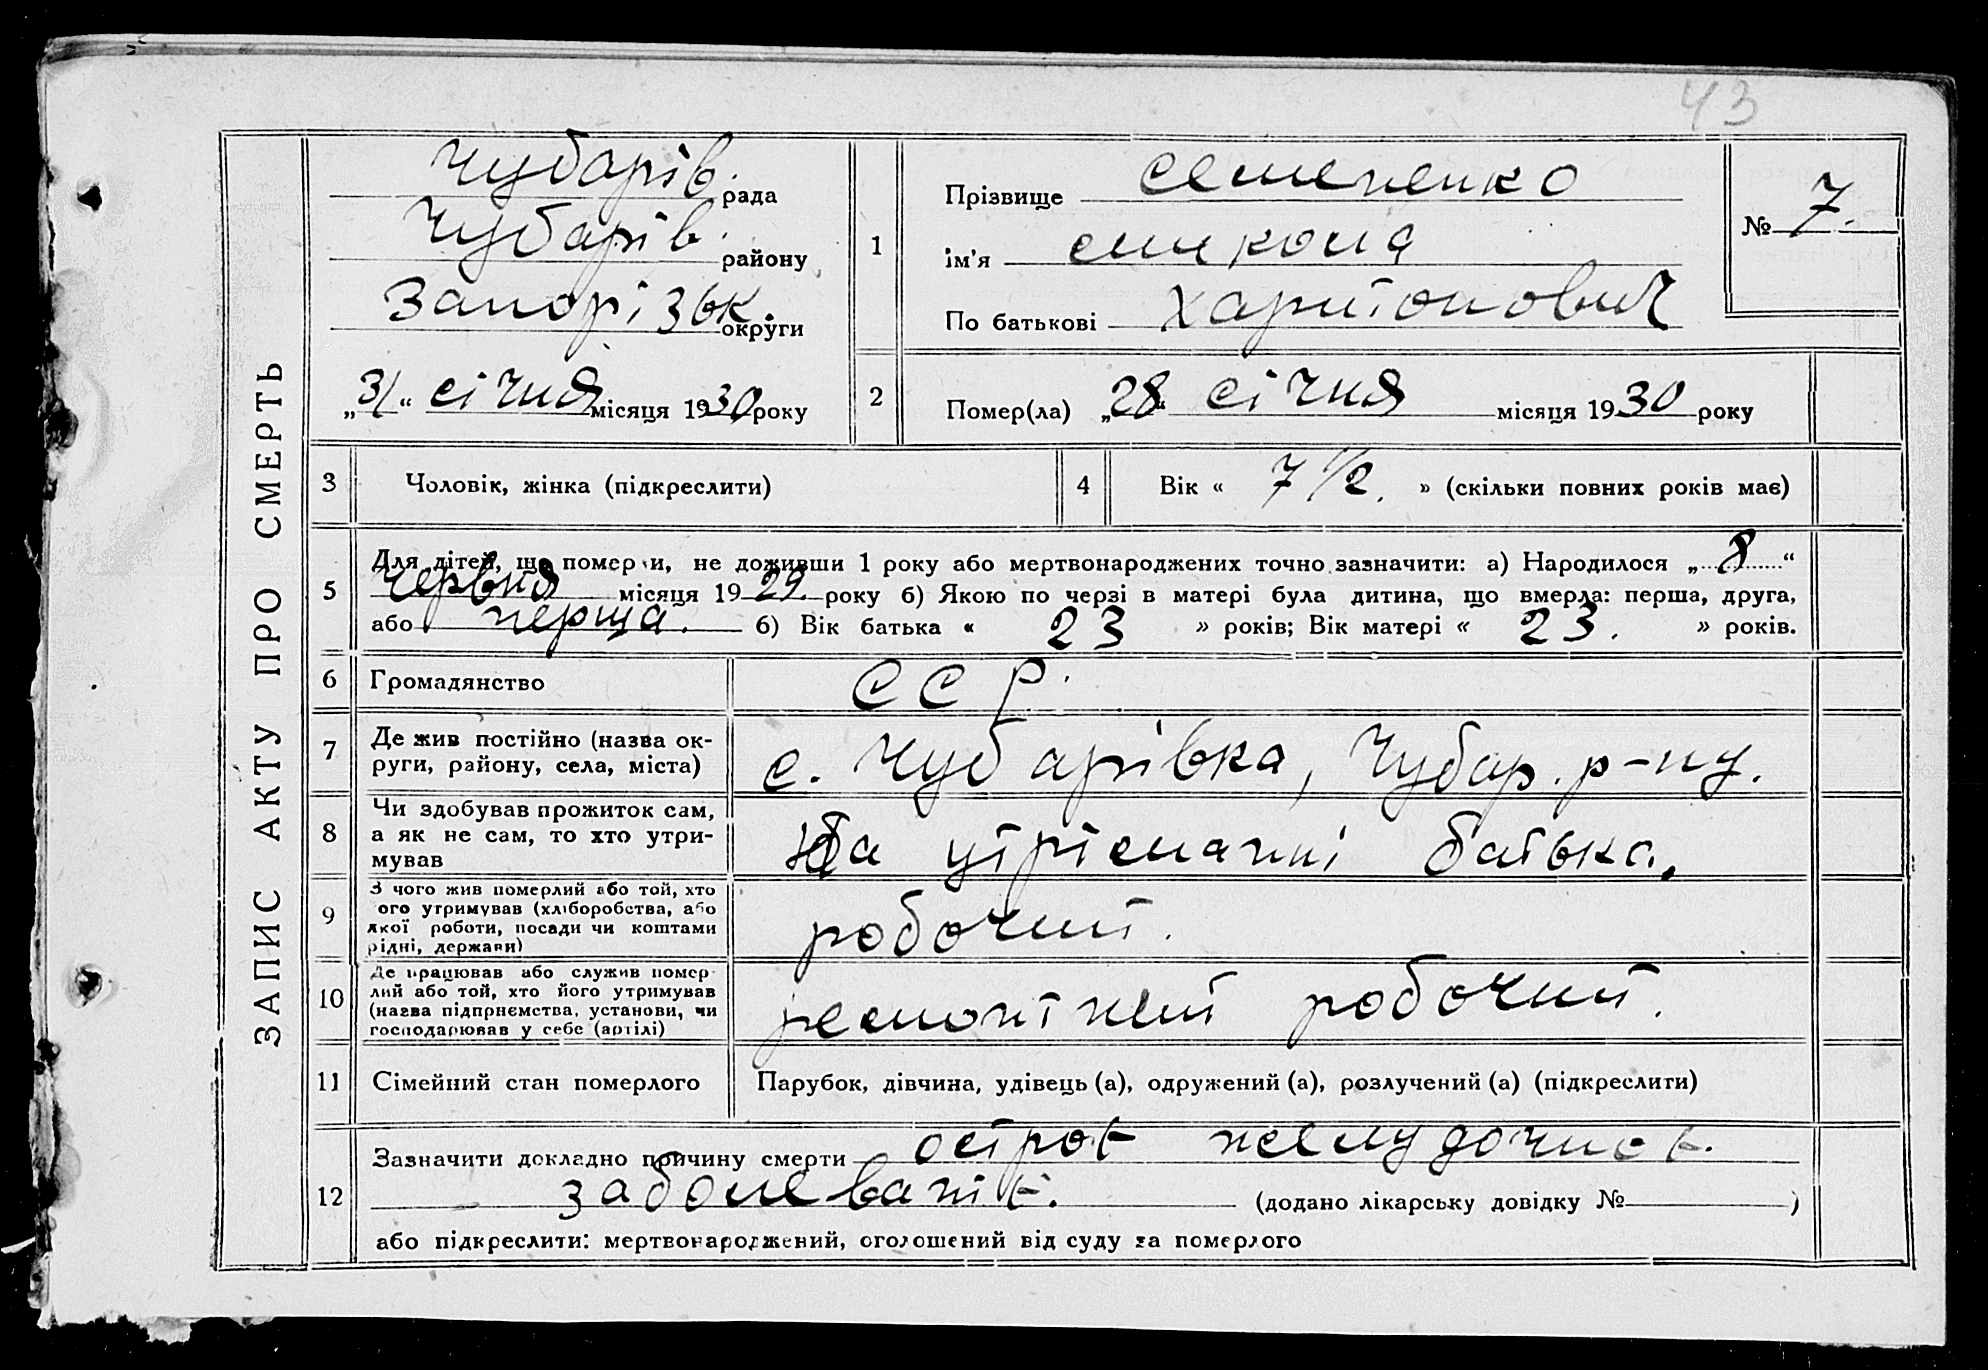 43
ЗАПИС АКТУ ПРО СМЕРТЬ
Чубарів. рада
Чубарів. району
Запорізьк. округи
„31“ січня місяця 1930 року
1
Прізвище Семененко
ім'я
По батькові Харитонович
№ 7.
2
Помер(ла) „28“ січня місяця 1930 року
3
Чоловік, жінка (підкреслити)
4
Вік « 7 1/2. » (скільки повних років має)
5
Для дітей, що померли, не доживши 1 року або мертвонароджених точно зазначити: а) Народилося „ 8 “
червня місяця 1929. року б) Якою по черзі в матері була дитина, що вмерла: перша, друга,
або перша. б) Вік батька « 23 » років; Вік матері « 23. » років.
6
Громадянство
ССР.
7
Де жив постійно (назва ок-
руги, району, села, міста)
с. Чубарівка, Чубар. р-ну.
8
Чи здобував прожиток сам,
а як не сам, то хто утри-
мував
На утріманні батька.
9
З чого жив померлий або той, хто
ого утримував (хліборобства, або
якої роботи, посади чи коштами
рідні, держави)
робочий.
10
Де працював або служив помер-
лий або той, хто його утримував
(назва підприємства, установи, чи
господарював у себе (артілі)
ремонтний робочий.
11
Сімейний стан померлого
Парубок, дівчина, удівець (а), одружений (а), розлучений (а) (підкреслити)
12
Зазначити докладно причину смерти острое желудочное.
заболевание. (додано лікарську довідку № )
або підкреслити: мертвонароджений, оголошений від суду за померлого